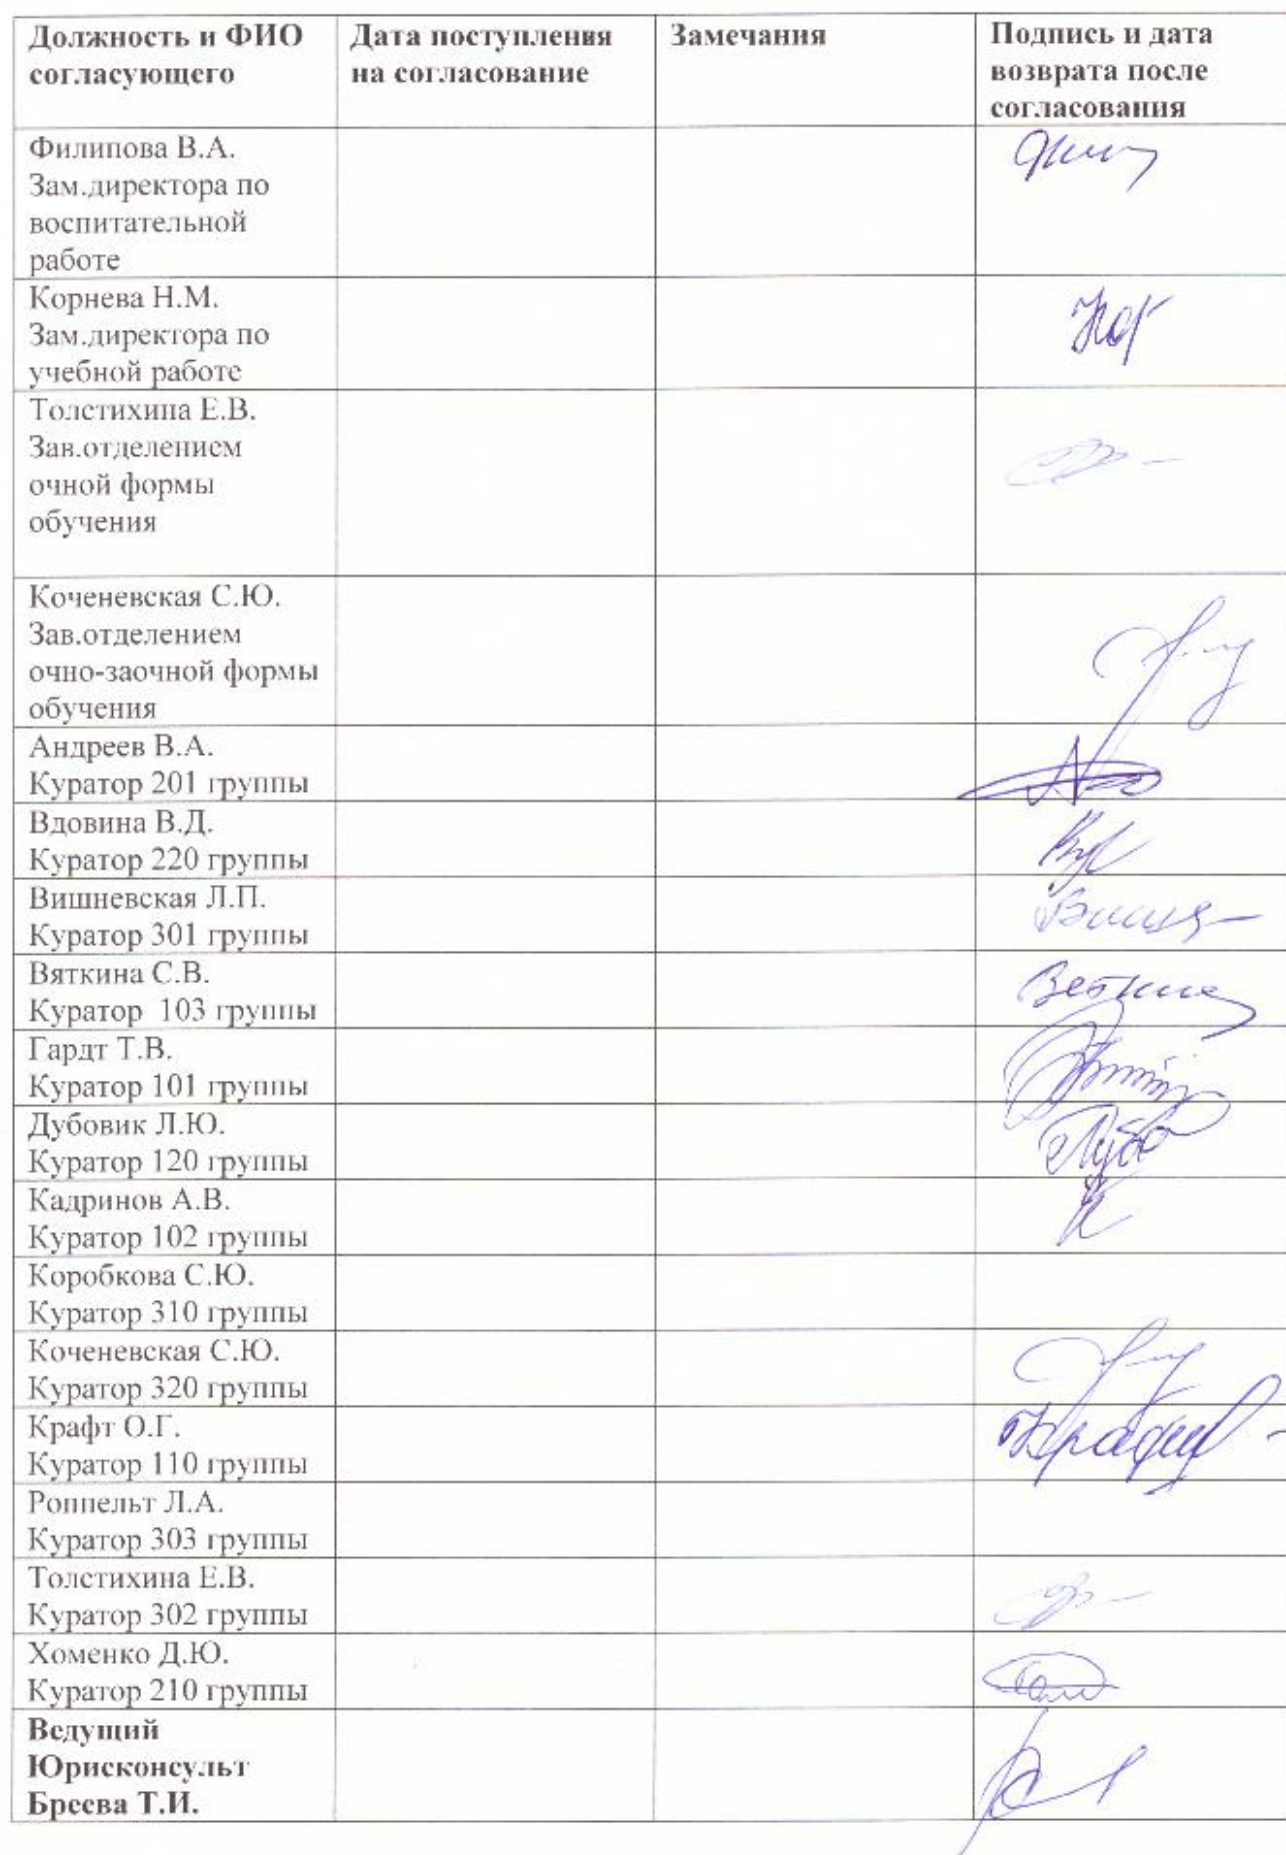 Должность и ФИО согласующего
Дата поступления на согласование
Замечания
Подпись и дата возврата после согласования
Филипова В.А.
Зам.директора по
воспитательной
работе
Корнева Н.М.
Зам.директора по
учебной работе
Толстихина Е.В.
Зав.отделением
очной формы
обучения
Коченевская С.Ю.
Зав.отделением
очно-заочной формы
обучения
Андреев В.А.
Куратор 201 группы
Вдовина В.Д.
Куратор 220 группы
Вишневская Л.П.
Куратор 301 группы
Вяткина С.В.
Куратор 103 группы
Гардт Т.В.
Куратор 101 группы
Дубовик Л.Ю.
Куратор 120 группы
Кадринов А.В.
Куратор 102 группы
Коробкова С.Ю.
Куратор 310 группы
Коченевская С.Ю.
Куратор 320 группы
Крафт О.Г.
Куратор 110 группы
Роппельт Л.А.
Куратор 303 группы
Толстихина Е.В.
Куратор 302 группы
Хоменко Д.Ю.
Куратор 210 группы
Ведущий
Юрисконсульт
Бреева Т.И.